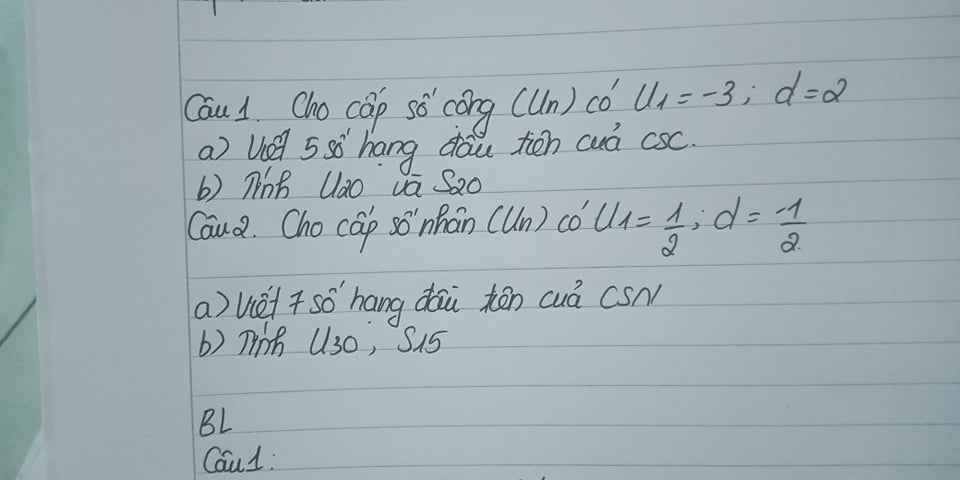 Câu 1. Cho cấp số cộng (Un) có U1 = -3; d = 2
a) Viết 5 số hạng đầu tiên của CSC.
b) Tính U20 và S20
Câu 2. Cho cấp số nhân (Un) có U1 = 1/2; d = -1/2
a) Viết 7 số hạng đầu tiên của CSN
b) Tính U30, S15
BL
Câu 1: